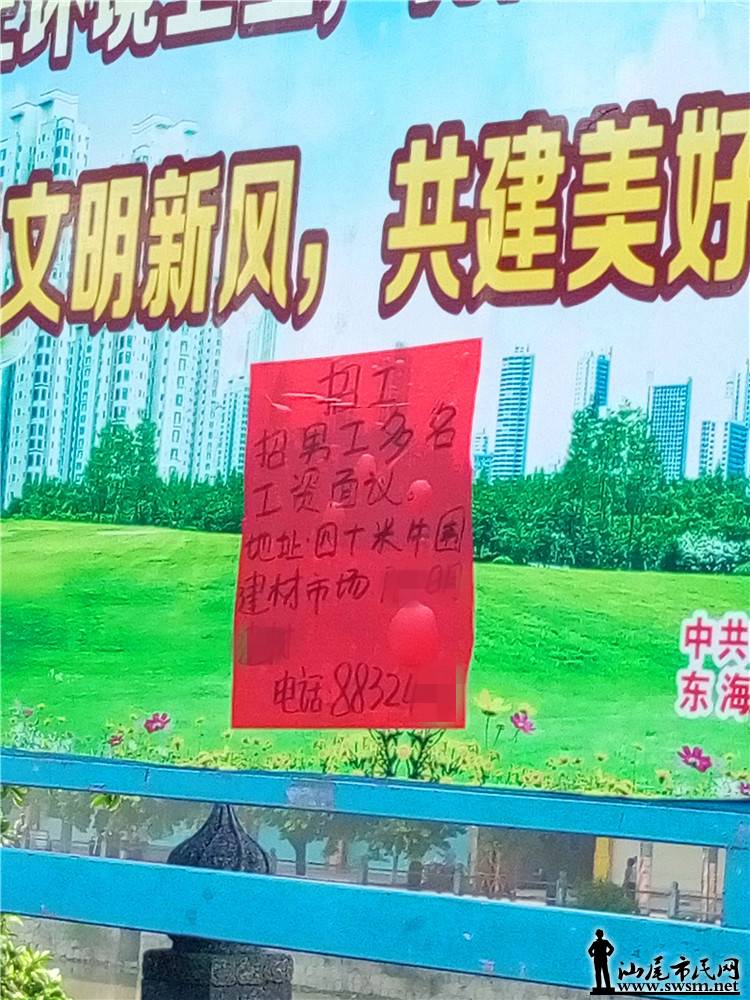 环境卫生,
文明新风，共建美好
招工
招男工多名
工资面议。
地址·四十米牛圈
建材市场
电话·88324
中共
东海
汕尾市民网
www.swsm.net